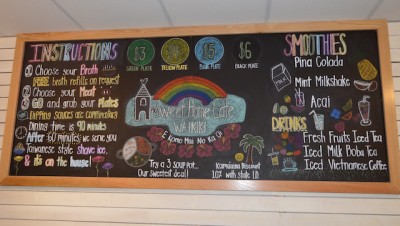 INSTRUCTIONS
① Choose your Broth
FREE broth refills on request
② Choose your Meat
③ GO and grab your Plates
Dipping sauces are complimentary
Dining time is 90 minutes
After 60 minutes we send you
Taiwanese style shave ice,
& it's on the house!
$3
GREEN PLATE
$4
YELLOW PLATE
$5
BLUE PLATE
$6
BLACK PLATE
Sweet Home Cafe
WAIKIKI
E Komo Mai No Ka Oi
Try a 3 soup pot...
Our sweetest deal!
Kamaaina Discount
10% with state ID
SMOOTHIES
Pina Colada
Mint Milkshake
Acai
DRINKS
Fresh Fruits Iced Tea
Iced Milk Boba Tea
Iced Vietnamese Coffee